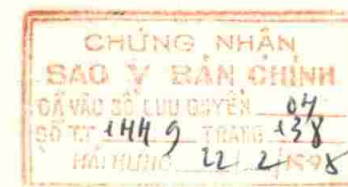 CHỨNG NHẬN
SAO Y BẢN CHÍNH
ĐÃ VÀO SỔ LƯU QUYỂN 04
SỐ T.T 1449 TRANG 138
HẢI HƯNG 22/2/1998